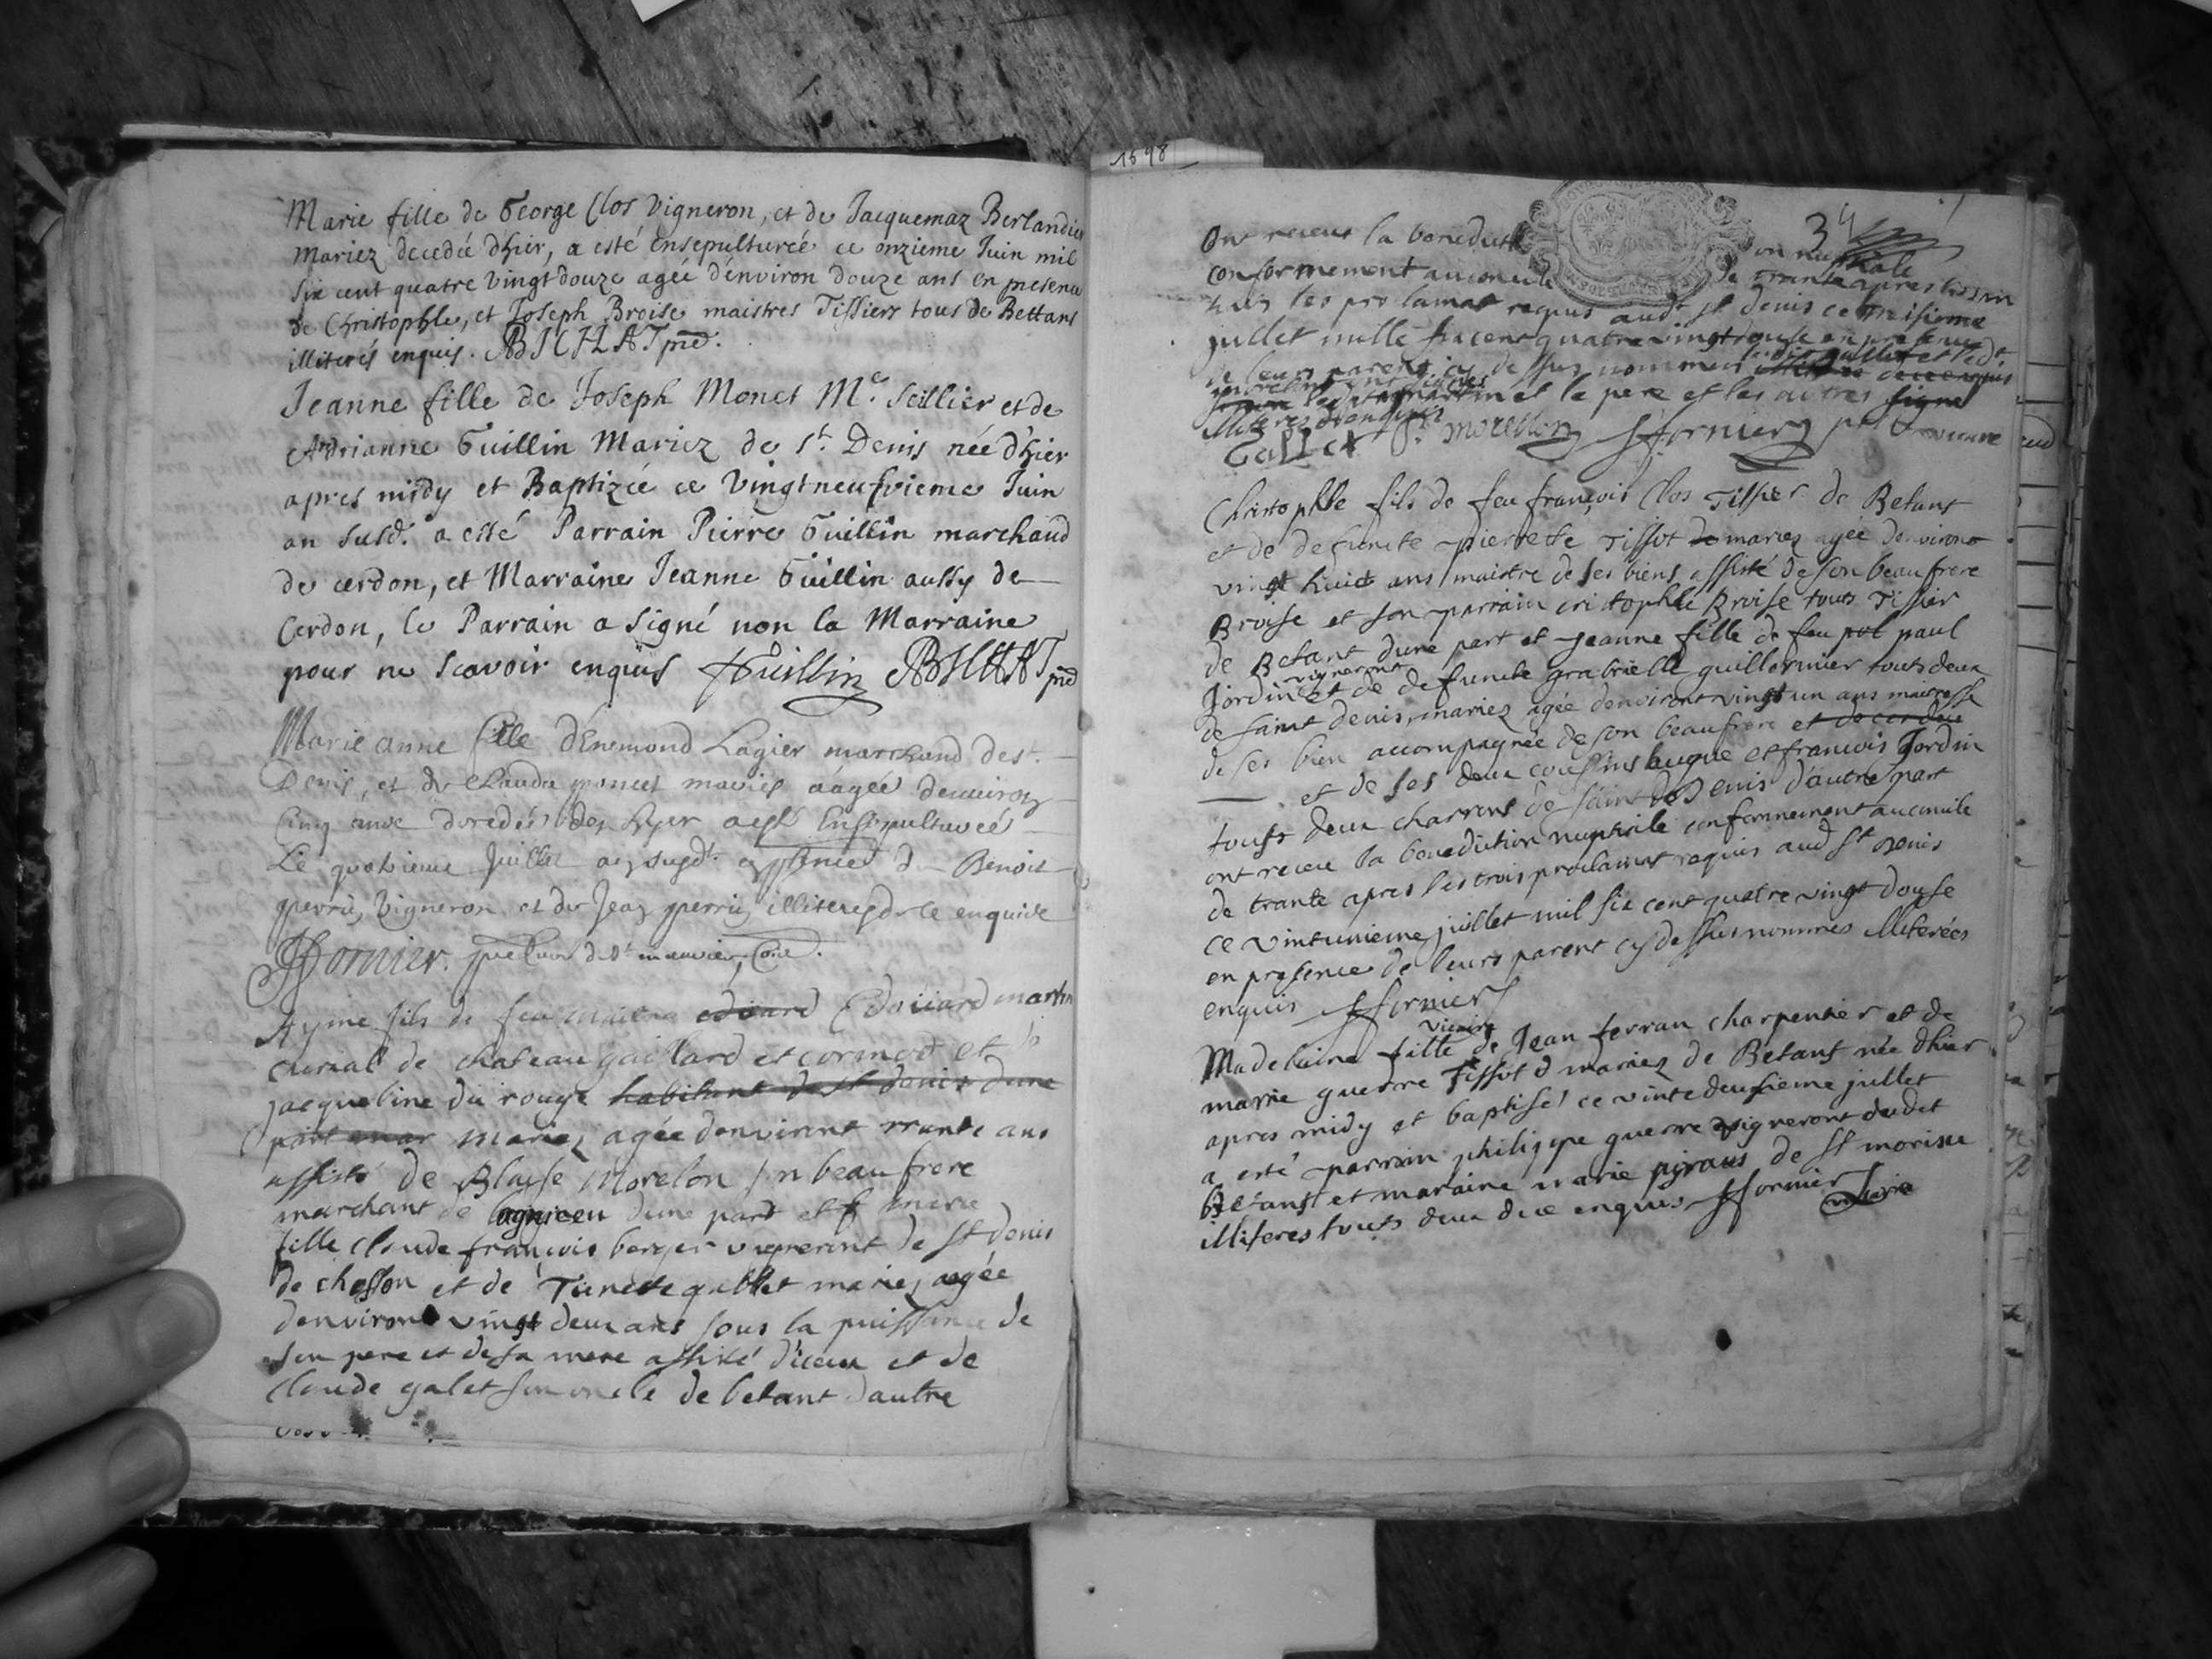 Marie fille de George Clos Vigneron, et de Jacquemaz Berlandier
Mariez decedée d'hier, a esté ensepulturée ce onzieme Juin mil
six cent quatre Vingt douze agée d'environ douze ans en presence
de Christophle, et Joseph Broise maistres Tissiers tous de Bettans
illiterés enquis. BICHAT
Jeanne fille de Joseph Monet Me. Seillier et de
Adrianne Guillin Mariez de St. Denis née d'hier
apres midy et Baptizée ce Vingtneufvieme Juin
an susd. a esté Parrain Pierre Guillin marchand
de cerdon, et Marraine Jeanne Guillin aussy de
Cerdon, le Parrain a signé non la Marraine
pour ne scavoir enquis Guillin BICHAT
Marie anne fille d'Enemond Lagier marchand de st.
Denis, et de Clauda poncet mariés aagée denuiron
Cinq ans decedée des hyer a esté Ensepulturée
Le quatrieme Juillet an susdt. en presence d Benoit
perrin Vigneron et de Jean perrin illiteres de ce enquise
Fornier.
Ayme fils de feu maitre edouard Edouard martin
curial de chateau gaillard et cormod et
jacqueline du rouge habitant de st denis dune
part mariez agée denviront trante ans
assisté de Blaise Morelon son beaufrere
marchant de lagnieu dune part et marie
fille claude françois berger vigneront de St Denis
de chosson et de gallet mariez agée
denviront vingt deux ans sous la puissance de
son pere et de sa mere assisté d'iceux et de
Claude galet son oncle de betant dautre
1698
34
Ont receus la benediction nuptiale
conformement au concile de trante apres les
trois les proclamat requis audt st denis ce troisieme
jullet mille six cent quatre vingt douse en presence
de leurs parens cy dessus nommes
martin et le pere et les autres signé
illiteres enquis
Gallet morellon Fornier vicaire
Christophle fils de feu françois Clos Tissier de Betant
et de defuncte pierrette Tissot de mariez agée denviront
vingt huict ans maistre de ses biens assisté de son beaufrere
Broise et son parrain cristophle Broise touts Tissier
de Betant dune part et jeanne fille de feu pol paul
vigneront
Jordin et de defuncte grabrielle guillermier touts deux
de saint denis mariez agée denviront vingt un ans maitresse
de ses bien accompagnée de son beaufrere et de ces deux
et de ses deux cousins huque et francois Jordin
touts deux charrons de saint de Denis d'autre part
ont receu la benediction nuptiale conformement au concile
de trante apres les trois proclamat requis aud St Denis
ce vintunieme juillet mil six cent quatre vingt douse
en presence de leurs parent cy dessus nommes illiterées
enquis Fornier
vicaire
Madelaine fille de Jean ferran charpentier et de
marie guerre Tissot d mariez de Betant née dhier
apres midy et baptisé ce vintedeusieme jullet
a esté parrain philippe guerre vigneront dudet
Betant et maraine marie de St morise
illiteres touts deux de ce enquis Fornier vicaire